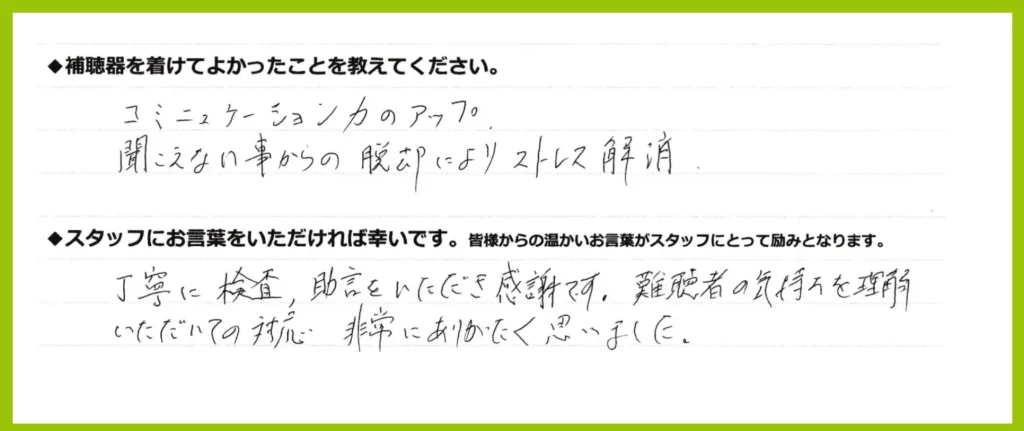 ◆補聴器を着けてよかったことを教えてください。
コミニュケーション力のアップ.
聞こえない事からの脱却によりストレス解消.
◆スタッフにお言葉をいただければ幸いです。皆様からの温かいお言葉がスタッフにとって励みとなります。
丁寧に検査,助言をいただき感謝です。難聴者の気持ちを理解
いただいての対応 非常にありがたく思いました。